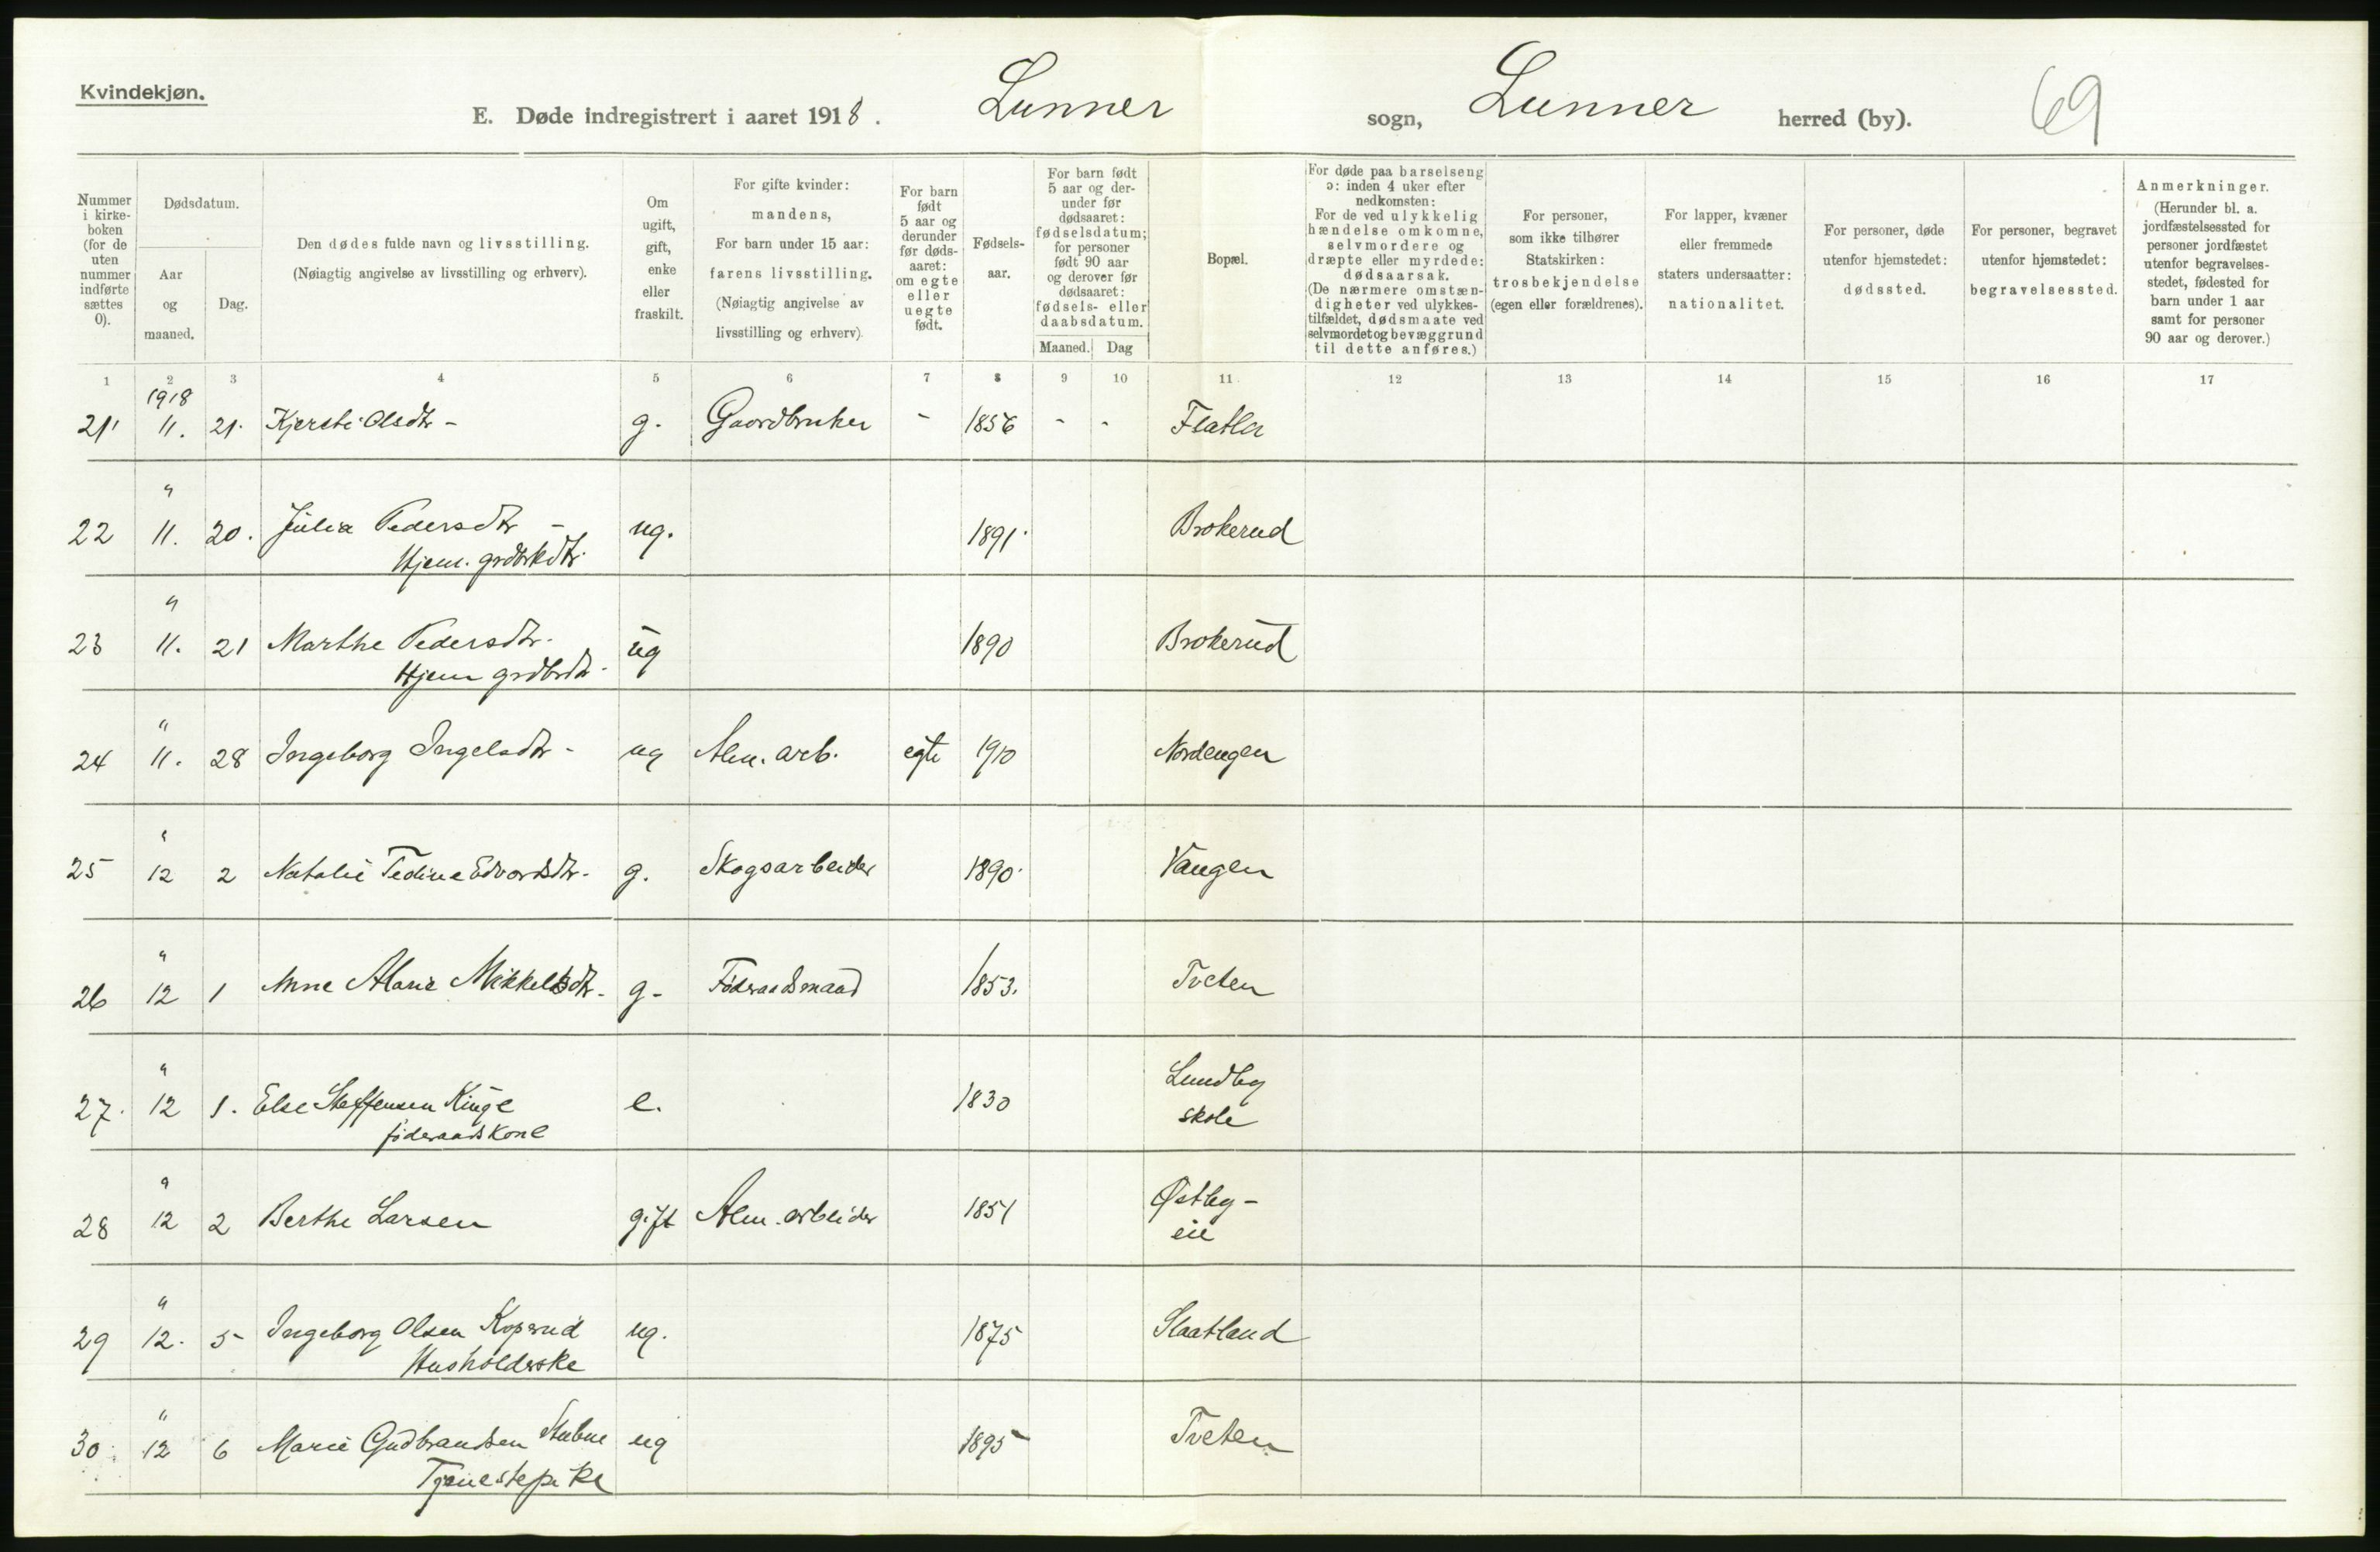 Kvindekjøn.
E. Døde indregistrert i aaret 1918. Lunner sogn, Lunner herred (by). 69
Nummer i kirke-boken (for de uten nummer indførte sættes 0).
Dødsdatum.
Aar og maaned.
Dag.
Den dødes fulde navn og livsstilling.
(Nøiagtig angivelse av livsstilling og erhverv).
Om ugift, gift, enke eller fraskilt.
For gifte kvinder: mandens,
For barn under 15 aar: farens livsstilling.
(Nøiagtig angivelse av livsstilling og erhverv).
For barn født 5 aar og derunder før døds-aaret: om egte eller uegte født.
Fødsels-aar.
For barn født 5 aar og der-under før dødsaaret: fødselsdatum; for personer født 90 aar og derover før dødsaaret: fødsels- eller daabsdatum.
Maaned. Dag
Bopæl.
For døde paa barselseng ɔ: inden 4 uker efter nedkomsten:
For de ved ulykkelig hændelse omkomne, selvmordere og dræpte eller myrdede: dødsaarsak.
(De nærmere omstæn-digheter ved ulykkes-tilfældet, dødsmaate ved selvmordet og bevæggrund til dette anføres.)
For personer, som ikke tilhører Statskirken: trosbekjendelse (egen eller forældrenes).
For lapper, kvæner eller fremmede staters undersaatter: nationalitet.
For personer, døde utenfor hjemstedet: dødssted.
For personer, begravet utenfor hjemstedet: begravelsessted.
Anmerkninger.
(Herunder bl. a. jordfæstelsessted for personer jordfæstet utenfor begravelses-stedet, fødested for barn under 1 aar samt for personer 90 aar og derover.)
1 2 3 4 5 6 7 8 9 10 11 12 13 14 15 16 17
1918
21 11. 21. Kjersti Olsdtr - g. Gaardbruker - 1856 - - Flatla
"
22 11. 20. Julia Pedersdtr - ug. 1891. Brokerud
Hjem. grdbrkdtr.
"
23 11. 21 Marthe Pedersdtr. ug 1890 Brokerud
Hjem grdbrdtr.
"
24 11. 28 Ingeborg Ingelsdtr - ug Alm. arb. egte 1910 Nordengen
"
25 12 2 Natalie Tedine Edvardsdtr. g. Skogsarbeider 1890. Vangen
"
26 12 1 Anne Marie Mikkelsdtr. g. Føderaadsmand 1853. Tveten
"
27. 12 1. Else Steffensen Kinge e. 1830 Lundby
føderaadskone skole
"
28 12 2 Berthe Larsen gift Alm. arbeider 1851 Østby-
eie
"
29 12. 5 Ingeborg Olsen Koperud ug. 1875 Slaatland
Husholderske
"
30. 12 6 Marie Gudbrandsen Stubne ug 1895 Tveten
Tjenestepike